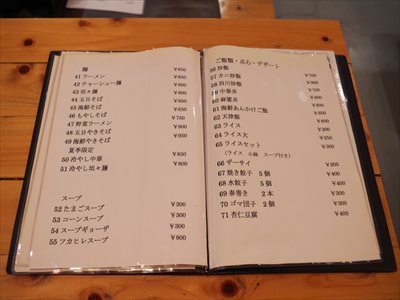 麺
41 ラーメン ¥650
42 チャーシュー麺 ¥800
43 坦々麺 ¥800
44 五目そば ¥900
45 海鮮そば ¥950
46 もやしそば ¥750
47 野菜ラーメン ¥800
48 五目やきそば ¥900
49 海鮮やきそば ¥950
夏季限定
50 冷やし中華 ¥850
51 冷やし坦々麺 ¥800
スープ
52 たまごスープ ¥300
53 コーンスープ ¥300
54 スープギョーザ ¥300
55 フカヒレスープ ¥800
ご飯飯・点心・デザート
56 炒飯
57 カニ炒飯
58 四川炒飯
59 中華丼
60 麻婆丼
61 海鮮あんかけご飯
62 天津飯
63 ライス
64 ライス大
65 ライスセット
(ライス 小鉢 スープ付き)
66 ザーサイ ¥200
67 焼き餃子 5個 ¥400
68 水餃子 5個 ¥400
69 春巻き 2本 ¥300
70 ゴマ団子 2個 ¥300
71 杏仁豆腐 ¥400